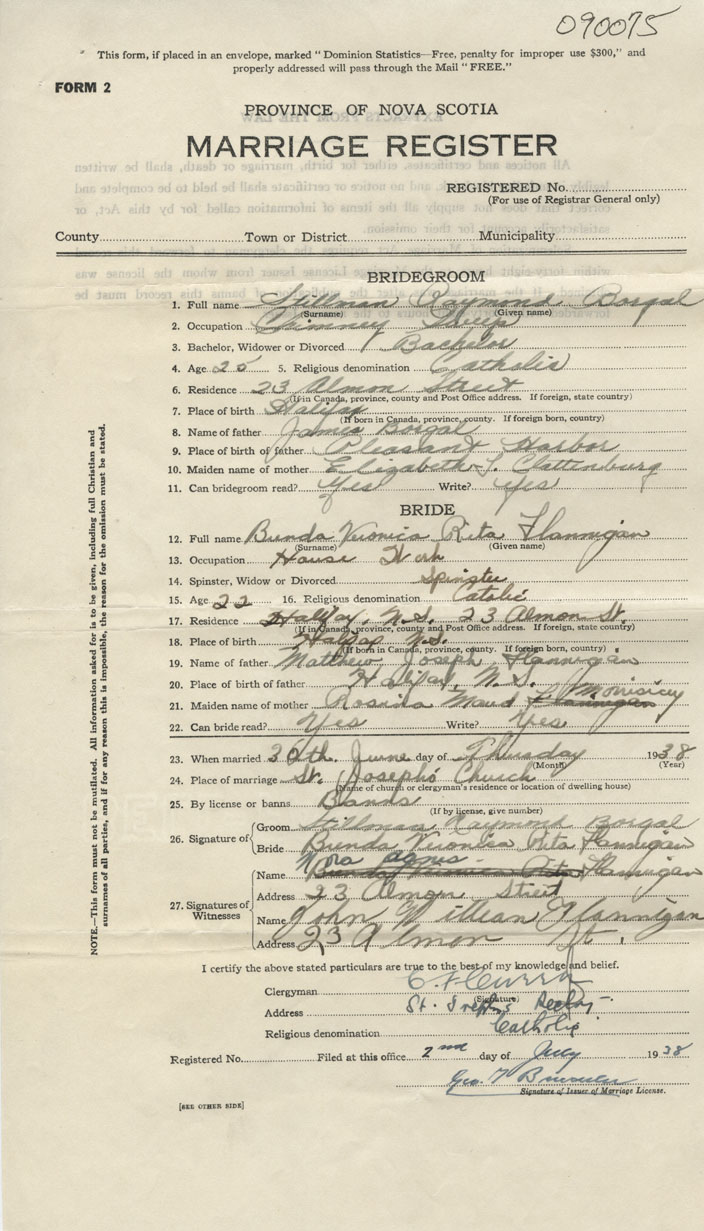 090075
This form, if placed in an envelope, marked "Dominion Statistics—Free, penalty for improper use $300," and
properly addressed will pass through the Mail "FREE."
FORM 2
PROVINCE OF NOVA SCOTIA
MARRIAGE REGISTER
REGISTERED No.
(For use of Registrar General only)
County Town or District Municipality
BRIDEGROOM
1. Full name Stillman Raymond Borgal
(Surname) (Given name)
2. Occupation Chimney Sweep
3. Bachelor, Widower or Divorced Bachelor
4. Age 25 5. Religious denomination Catholic
6. Residence 23 Almon Street
(If in Canada, province, county and Post Office address. If foreign, state country)
7. Place of birth Halifax
(If born in Canada, province, county. If foreign born, country)
8. Name of father James Borgal
9. Place of birth of father Pleasant Harbor
10. Maiden name of mother Elizabeth S.
11. Can bridegroom read? Yes Write? Yes
BRIDE
12. Full name Bunda Veronica Rita Flannigan
(Surname) (Given name)
13. Occupation House Work
14. Spinster, Widow or Divorced Spinster
15. Age 22 16. Religious denomination Catolic
17. Residence Halifax, N.S. 23 Almon St.
(If in Canada, province, county and Post Office address. If foreign, state country)
18. Place of birth Halifax N.S.
(If born in Canada, province, county. If foreign born, country)
19. Name of father Matthew Joseph Flannigan
20. Place of birth of father Halifax, N.S.
21. Maiden name of mother Rosina Maud Flannigan
22. Can bride read? Yes Write? Yes
23. When married 30th June day of Thusday 1938
(Month) (Year)
24. Place of marriage St. Joseph's Church
(Name of church or clergyman's residence or location of dwelling house)
25. By license or banns Banns
(If by license, give number)
26. Signature of
Groom Stillman Raymond Borgal
Bride Bunda Veronica Rita Flannigan
Nora Agnes
27. Signatures of Witnesses
Name Bunda Veronica Rita Flannigan
Address 23 Almon Street
Name John Willian Flannigan
Address 23 Almon St.
I certify the above stated particulars are true to the best of my knowledge and belief.
Clergyman
(Signature)
Address St.
Religious denomination Catholic
Registered No. Filed at this office 2nd day of July 1938
Geo.
Signature of Issuer of Marriage License.
[SEE OTHER SIDE]
NOTE.—This form must not be mutilated. All information asked for is to be given, including full Christian and
surnames of all parties, and if for any reason this is impossible, the reason for the omission must be stated.